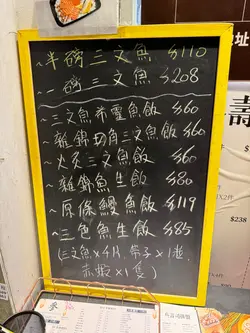 ~半磅三文魚 $110
~一磅三文魚 $208
~三文魚希靈魚飯 $60
~雜錦切角三文魚飯 $60
~火炙三文魚飯 $60
~雜錦魚生飯 $80
~原條鰻魚飯 $119
~三色魚生飯 $85
(三文魚x4片,帶子x1粒,
赤蝦x1隻)
壽
$238